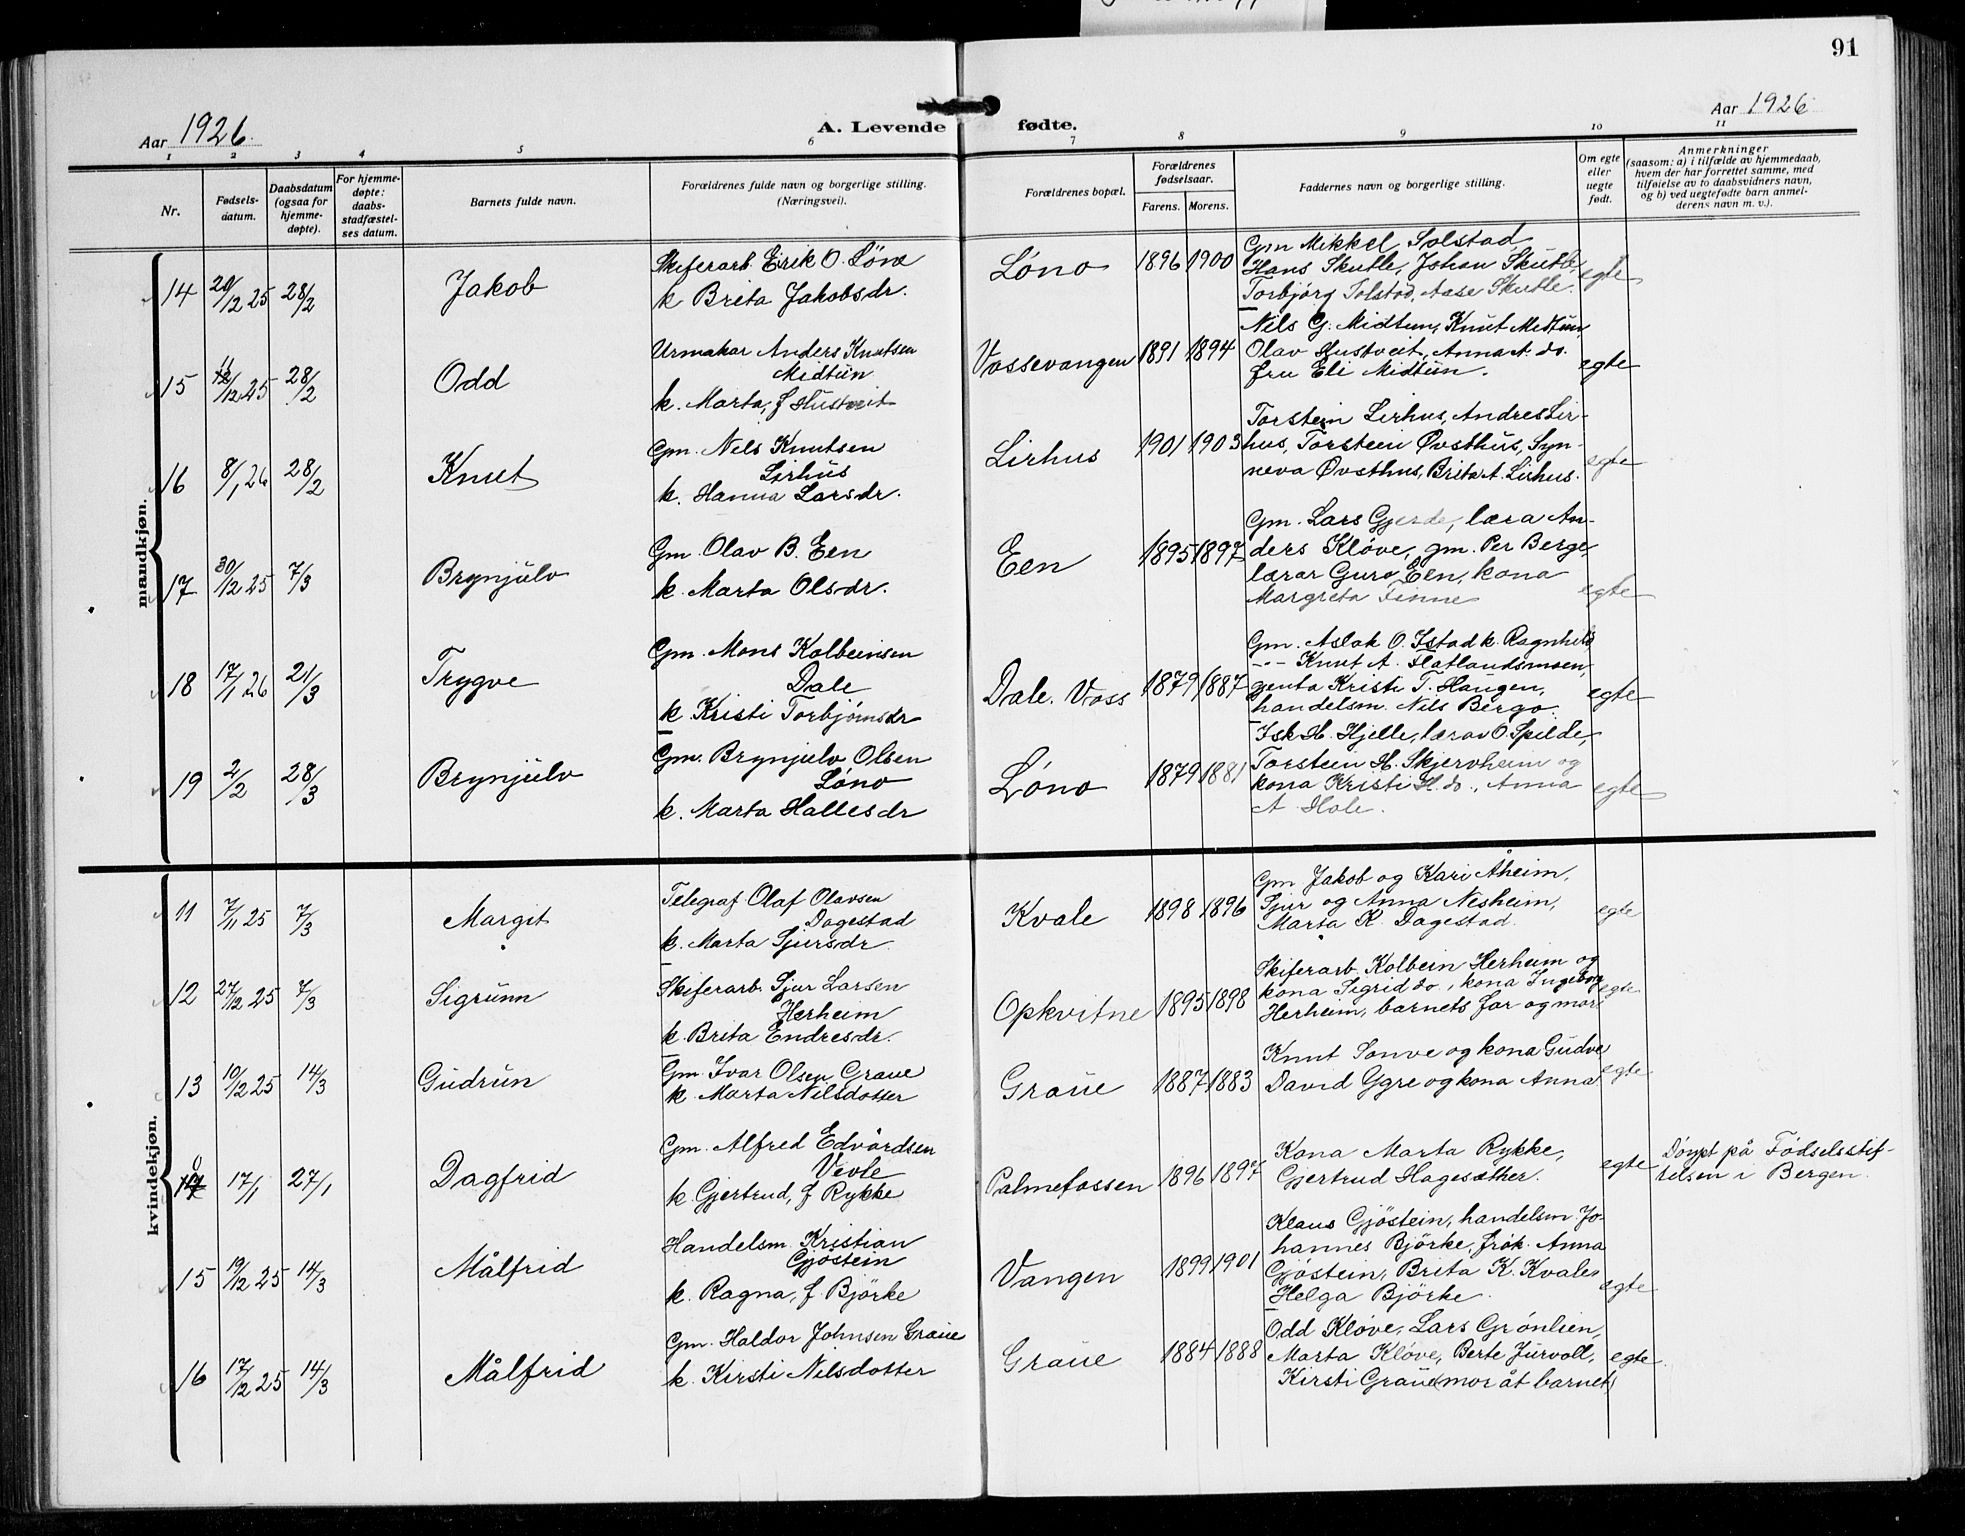 91
Aar 1926.
A. Levende fødte.
Aar 1926
1 2 3 4 5 6 7 8 9 10 11
Nr.
Fødsels-
datum.
Daabsdatum
(ogsaa for
hjemme-
døpte).
For hjemme-
døpte:
daabs-
stadfæstel-
ses datum.
Barnets fulde navn.
Forældrenes fulde navn og borgerlige stilling.
(Næringsvei).
Forældrenes bopæl.
Forældrenes
fødselsaar.
Farens. Morens.
Faddernes navn og borgerlige stilling.
Om egte
eller
uegte
født.
Anmerkninger
(saasom: a) i tilfælde av hjemmedaab,
hvem der har forrettet samme, med
tilføielse av to daabsvidners navn,
og b) ved uegtefødte barn anmel-
derens navn m. v.).
mandkjøn.
14 20/12 25 28/2 Jakob
Skiferarb. Erik O. Løno
k Brita Jakobsdr.
Løno 1896 1900
Gm Mikkel Solstad
Hans Skutle, Johan Skutle,
Torbjørg Tolstad, Aase Skutle.
egte
15 /12 25 28/2 Odd
Urmakar Anders Knutsen
Midtün
k. Marta, f Hustveit
Vossevangen 1891 1894
Nils G. Midtun, Knut Midtün,
Olav Hustveit, Anna A. do.
fru Eli Midtün.
egte
16 8/1 26 28/2 Knut
Gm. Nils Knutsen
Lirhus
k. Hanna Larsdr.
Lirhus 1901 1903
Torstein Lirhus, Andres Lir-
hus, Torstein Øvsthus, Syn-
neva Øvsthus, Brita A. Lirhus.
egte
17 30/12 25 7/3 Brynjülv
Gm. Olav B. Een
k. Marta Olsdr.
Een 1895 1897
Gm. Lars Gjerde, læra An-
ders Kløve, gm. Per Berge,
lærar Guro Een, kona
Margreta Finne
egte
18 17/1 26 21/3 Trygve
Gm. Mons Kolbeinsen
Dale
k. Kristi Torbjørnsdr
Dale. Voss 1879 1887
Gm. Aslak O. Istad k. Ragnhild
-"- Knut A. Flatlandsmoen,
genta Kristi T. Haugen,
handelsm. Nils Bergo.
egte
19 2/2 28/3 Brynjülv
Gm. Brynjulv Olsen
Løno
k. Marta Hallesdr
Løno 1879 1881
Isk H. Hjelle, lærar O. Spilde,
Torstein H. Skjervheim og
kona Kristi H. do., Anna
A. Hole.
egte
kvindekjøn.
11 7/11 25 7/3 Margit
Telegraf Olaf Olavsen
Dagestad
k. Marta Sjursdr
Kvale 1898 1896
Gm Jakob og Kari Åheim,
Sjur og Anna Nesheim,
Marta K. Dagestad.
egte
12 27/12 25 7/3 Sigrunn
Skiferarb. Sjur Larsen
Herheim
k. Brita Endresdr.
Opkvitne 1895 1898
Skiferarb. Kolbein Herheim og
kona Sigrid do., kona Ingeborg
Herheim, barnets far og mor
egte
13 10/12 25 14/3 Gudrün
Gm. Ivar Olsen Graue
k. Marta Nilsdotter
Graüe 1887 1883
Knut Sonve og kona Gudve
David Ygre og kona Anna
egte
17/1 27/1 Dagfrid
Gm. Alfred Edvardsen
Vevle
k. Gjertrud, f Rykke
Palmefossen 1896 1897
Kona Marta Rykke,
Gjertrud Hagesæther.
egte
Döypt på Fødselsstif-
telsen i Bergen.
15 19/12 25 14/3 Målfrid
Handelsm. Kristian
Gjöstein
k. Ragna, f. Björke
Vangen 1899 1901
Klaus Gjöstein, handelsm Jo-
hannes Björke, frök. Anna
Gjöstein, Brita K. Kvale,
Helga Björke.
egte
16 17/12 25 14/3 Målfrid
Gm. Haldor Johnsen Graue
k. Kirsti Nilsdotter
Graüe 1884 1888
Odd Kløve, Lars Grønlien,
Marta Kløve, Berte Jürvoll,
Kirsti Graüe (mor åt barnet)
egte